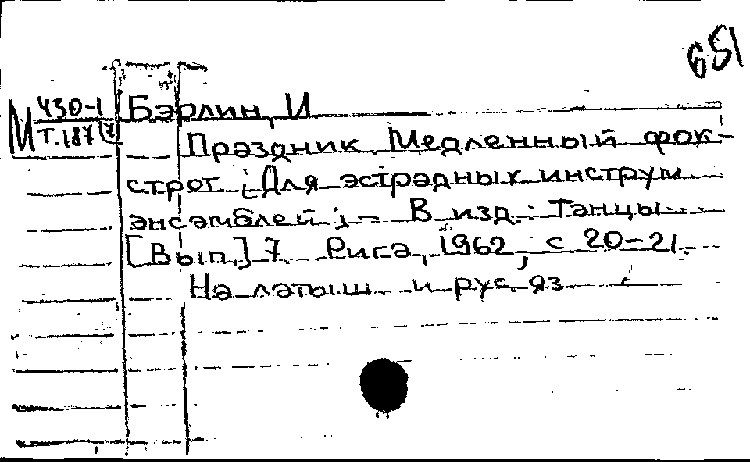 651
М 430-1 Бэрлин, И
Т.187(7)
Праздник Медленный фок-
строт; Для эстрадных инструм
ансамблей; - В изд.: Танцы
[Вып.] 7 Рига, 1962, с 20-21.
На латыш и рус яз